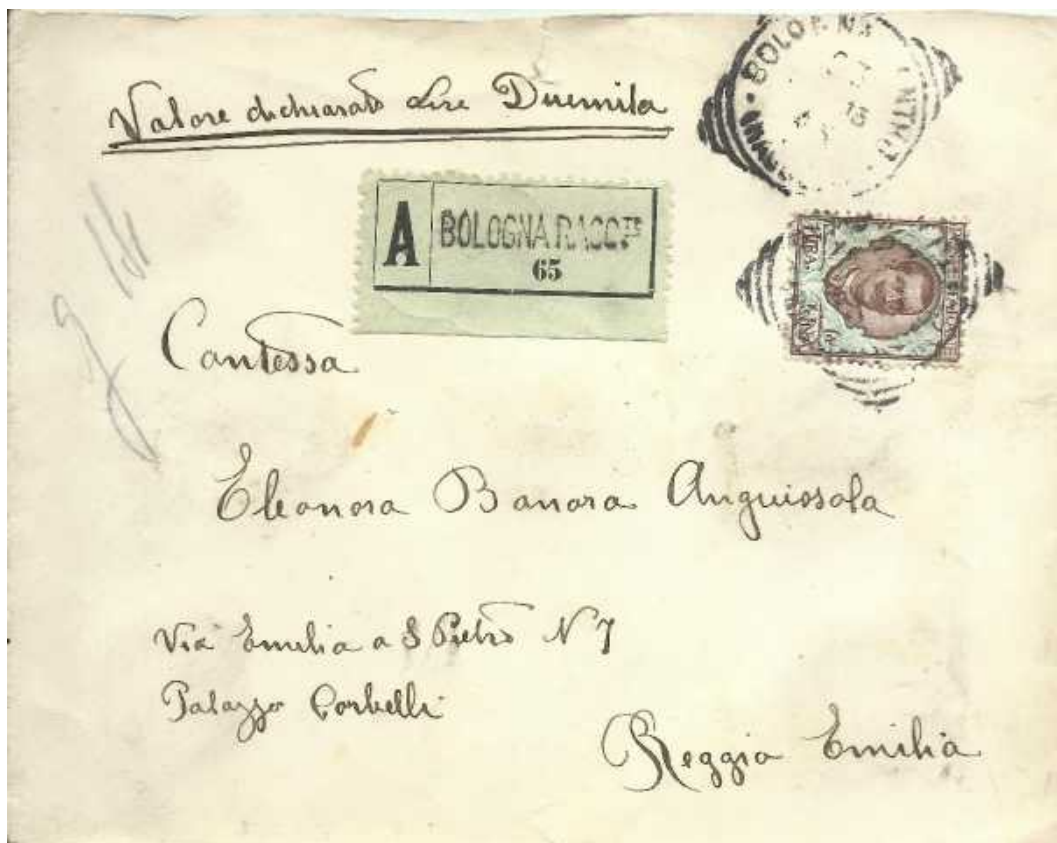 Valore dichiarato Lire Duemila
BOLOGNA
A
BOLOGNA RACC.TE
65
LIRA
Contessa
Eleonora Banora Anguissola
Via Emilia a S Pietro N 7
Palazzo Corbelli
Reggio Emilia